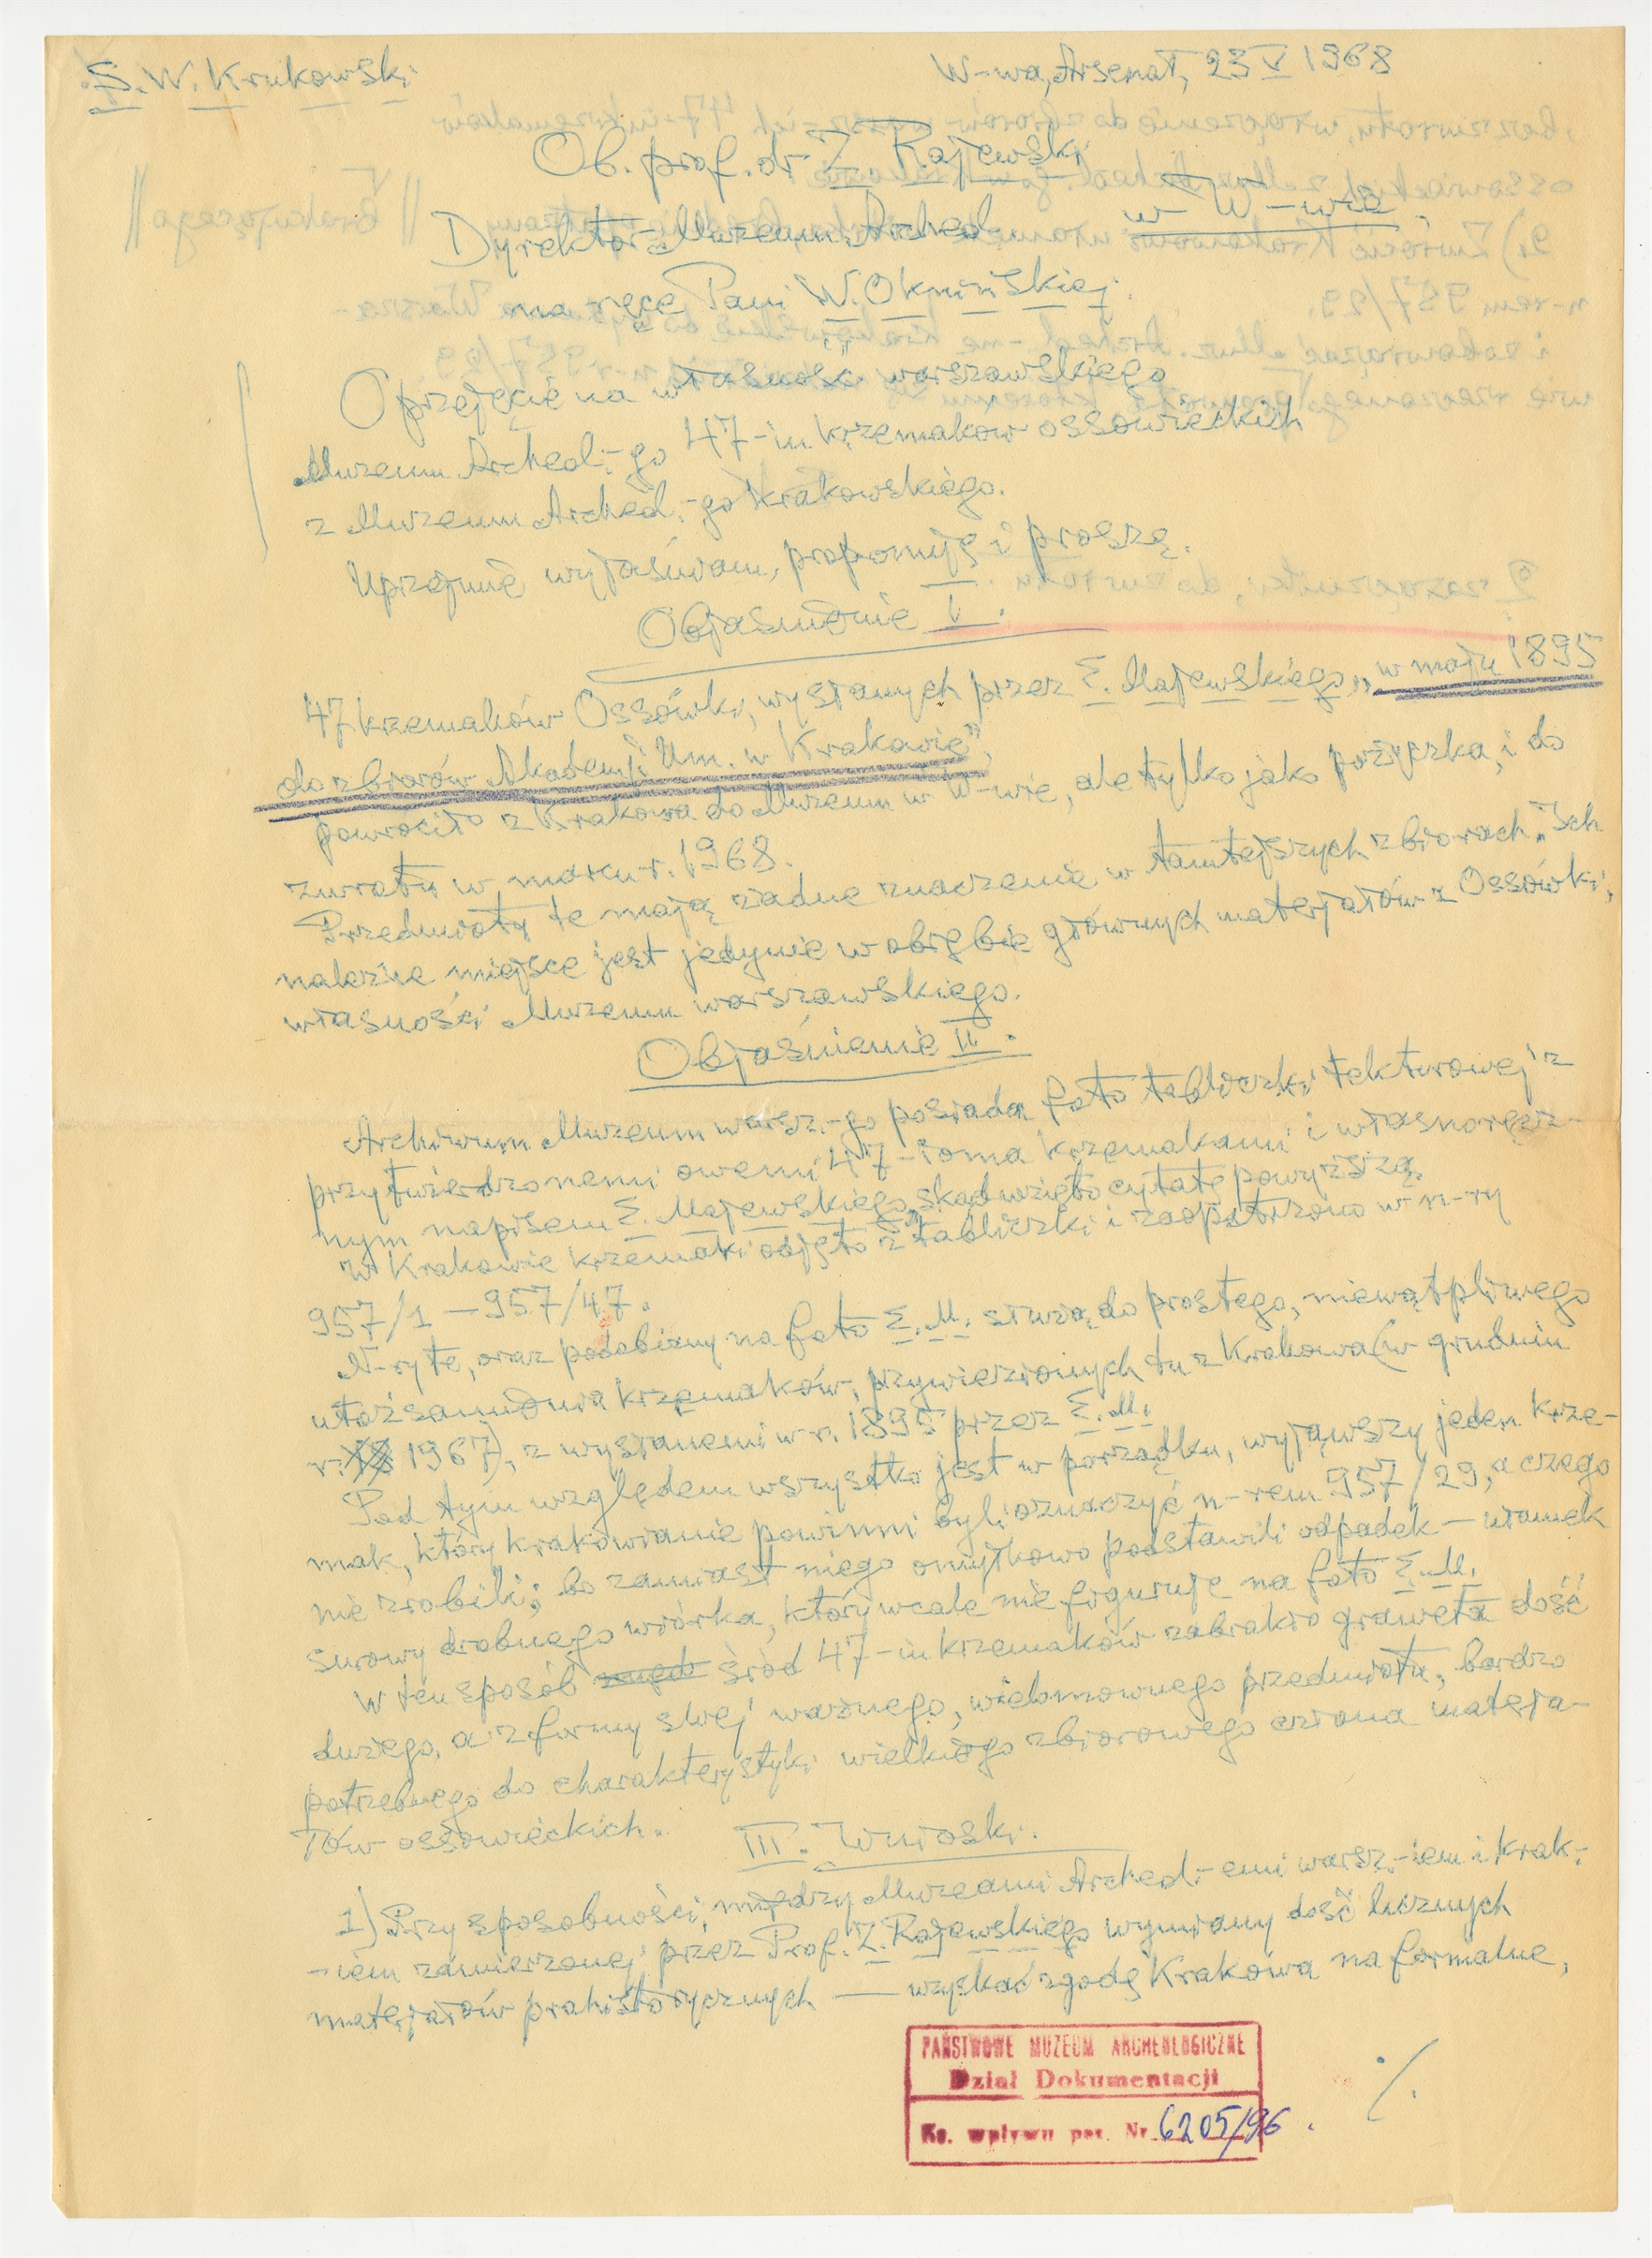 S. W. Krukowski
W-wa, Arsenał, 23 V 1968
Ob. prof. dr Z. Rajewski
Dyrektor Muzeum Archeol. w W-wie
na ręce Pani W. Okmińskiej.
O przejęcie na własność warszawskiego
Muzeum Archeol.-go 47-iu krzemaków ossowieckich
z Muzeum Archeol.-go krakowskiego.
Uprzejmie wyjaśniam, proponuję i proszę.
Objaśnienie I.
47 krzemaków Ossówki, wysłanych przez E. Majewskiego „w maju 1895
do zbiorów Akademji Um. w Krakowie”,
powróciło z Krakowa do Muzeum w W-wie, ale tylko jako pożyczka, i do
zwrotu w marcu r. 1968.
Przedmioty te mają żadne znaczenie w tamtejszych zbiorach. Ich
należne miejsce jest jedynie w obrębie głównych materjałów z Ossówki,
własności Muzeum warszawskiego.
Objaśnienie II.
Archiwum Muzeum warsz.-go posiada foto tabliczki tekturowej z
przytwierdzonemi owemi 47-ioma krzemakami i własnoręcz-
nym napisem E. Majewskiego, skąd wzięto cytatę powyższą.
W Krakowie krzemaki odjęto z tabliczki i zaopatrzono w n-ry
957/1 — 957/47.
N-ry te, oraz podobizny na foto E. M. służą do prostego, niewątpliwego
utożsamiania krzemaków, przywiezionych tu z Krakowa (w grudniu
r. 1967), z wysłanemi w r. 1895 przez E. M.
Pod tym względem wszystko jest w porządku, wyjąwszy jeden krze-
mak, który krakowianie powinni byli oznaczyć n-rem 957/29, a czego
nie zrobili; bo zamiast niego omyłkowo podstawili odpadek — ułamek
surowy drobnego wiórka, który wcale nie figuruje na foto E. M.
W ten sposób śród 47-iu krzemaków zabrakło graweta dość
dużego, a z formy swej ważnego, wielomownego przedmiotu, bardzo
potrzebnego do charakterystyki wielkiego zbiorowego członu materja-
łów ossowieckich.
III. Wnioski.
1) Przy sposobności, między Muzeami Archeol.-emi warsz.-iem i krak.-
-iem zamierzonej przez Prof. Z. Rajewskiego wymiany dość licznych
materjałów prahistorycznych — uzyskać zgodę Krakowa na formalne,
PAŃSTWOWE MUZEUM ARCHEOLOGICZNE
Dział Dokumentacji
Ks. wpływu poz. Nr. 6205/96.
./.